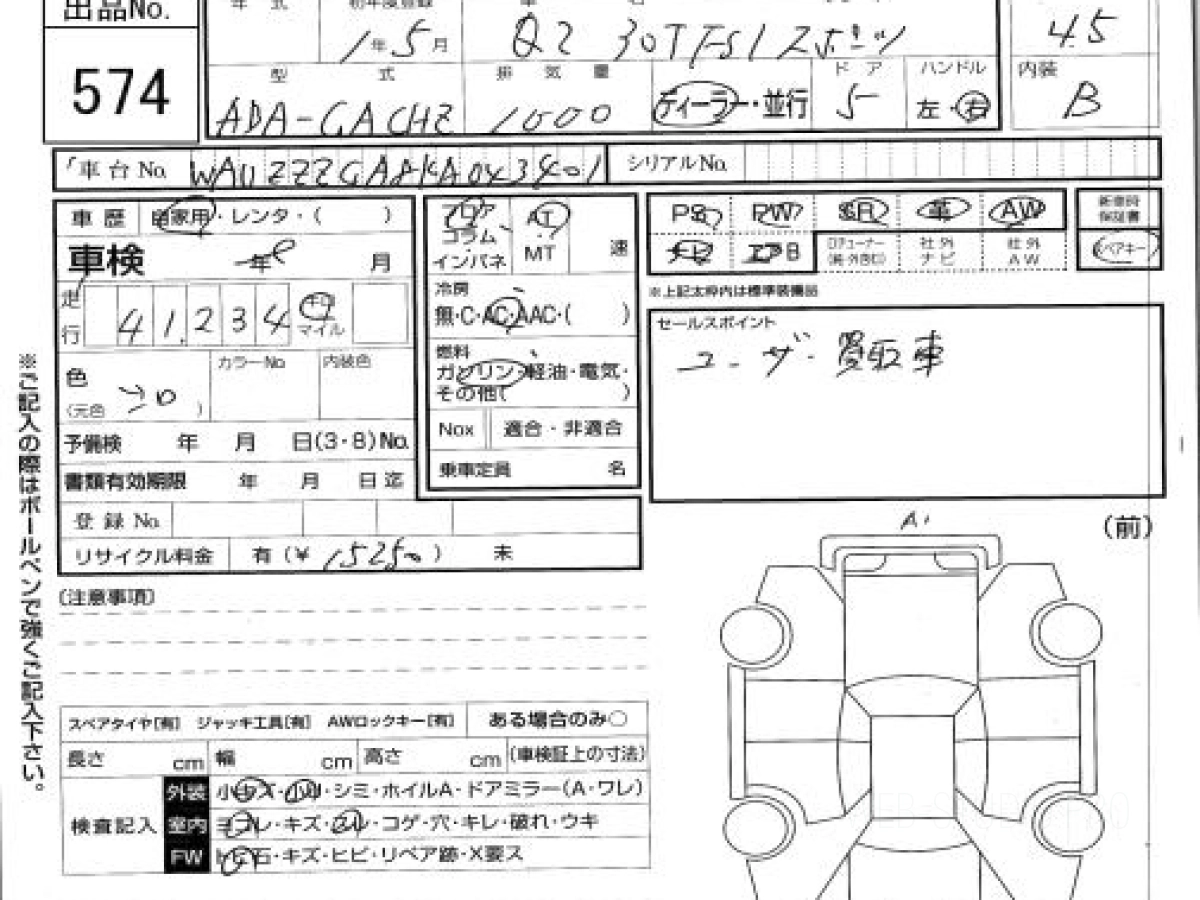 出品No.
574
年 式
初年度登録
1年5月
Q2 30TFSI スポーツ
4.5
型 式
排 気 量
ADA-GACHZ
1000
ディーラー・並行
ド ア
5
ハンドル
左・右
内装
B
車台No.
WAUZZZGA8KA043401
シリアルNo.
車 歴
自家用・レンタ・( )
車検
年 月
走行
41,234
キロ
マイル
色
(元色 )
シロ
カラーNo
内装色
予備検 年 月 日(3・8)No.
書類有効期限 年 月 日迄
登 録 No.
リサイクル料金 有(¥ 15250 ) 未
フロア
コラム
インパネ
AT
MT
速
冷房
無・C・AC・AAC・( )
燃料
ガソリン・軽油・電気・
その他( )
Nox 適合・非適合
乗車定員 名
PS PW SR 革 AW
ナビ エアB
ロアチューナー
(純・外BO)
社 外
ナ ビ
社 外
A W
新車時
保証書
スペアキー
※上記太枠内は標準装備品
セールスポイント
ユーザー買取車
A1
(前)
(注意事項)
※ご記入の際はボールペンで強くご記入下さい。
スペアタイヤ[有] ジャッキ工具[有] AWロックキー[有] ある場合のみ○
長さ cm 幅 cm 高さ cm (車検証上の寸法)
検査記入
外装 小キズ・小凹・シミ・ホイルA・ドアミラー(A・ワレ)
室内 ヨゴレ・キズ・スレ・コゲ・穴・キレ・破れ・ウキ
FW トビ石・キズ・ヒビ・リペア跡・X要ス